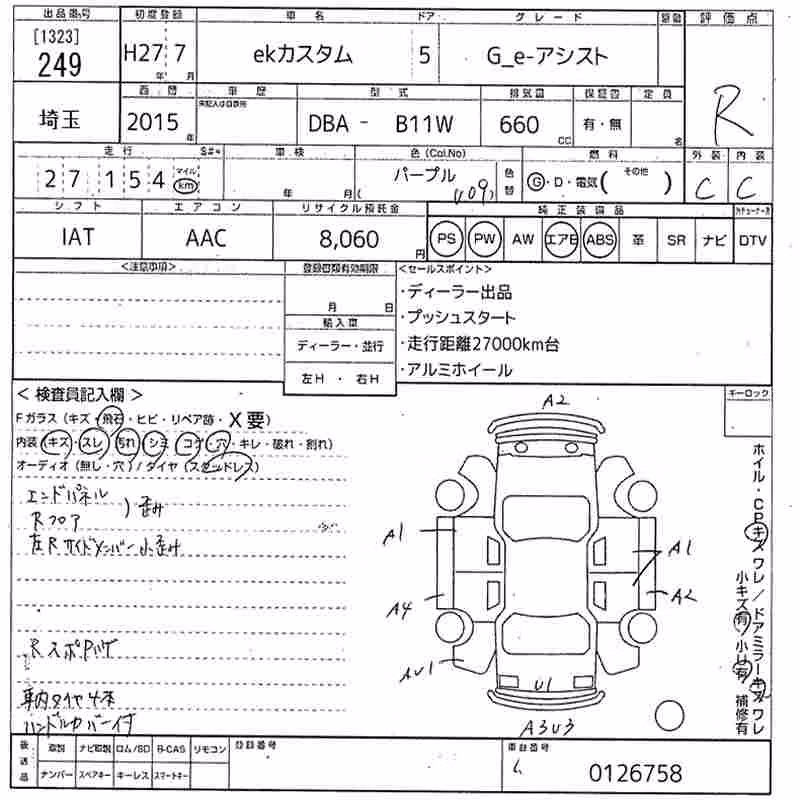 出品番号 初度登録 車名 ドア グレード 評価点
[1323]
249 H27 7 ekカスタム 5 G_e-アシスト R
年 月
西暦 車歴 型式 排気量 保証書 定員
未記入は自家用
埼玉 2015 DBA - B11W 660 有・無
年 CC 名
走行 車検 色(Col.No) 燃料 外装 内装
27,154 マイル km 年 月 パープル (109) 色替 G・D・電気( その他 ) C C
シフト エアコン リサイクル預託金 純正装備品
IAT AAC 8,060円 PS PW AW エアB ABS 革 SR ナビ DTV
<注意事項> 登録書類有効期限 <セールスポイント>
月 日
・ディーラー出品
・プッシュスタート
輸入車
ディーラー・並行
・走行距離27000km台
左H・右H
・アルミホイール
<検査員記入欄> キーロック
Fガラス(キズ・飛石・ヒビ・リペア跡・X要)
内装(キズ・スレ・汚れ・シミ・コゲ・穴・キレ・破れ・割れ)
オーディオ(無し・穴)/タイヤ(スタッドレス)
エンドパネル
Rフロア
)歪み
左Rサイドメンバー小歪み
Rスポハゲ
車内タイヤ4本
ハンドルカバー付
A2
A1
A1
A4
A2
AU1
U1
A3U3
ホイル・CPキズワレ/ドアミラーキズワレ
小キズ有 小U有 補修有
後送品 取説 ナビ取説 ロム/SD B-CAS リモコン 登録番号 車台番号
ナンバー スペアキー キーレス スマートキー
0126758